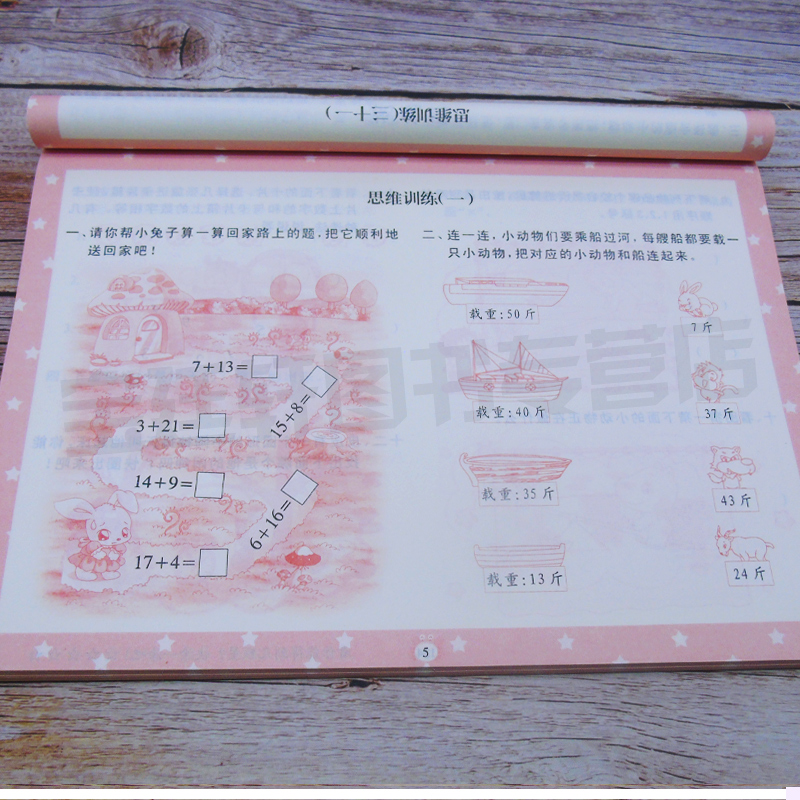 思维训练(三十一)
思维训练(一)
一、请你帮小兔子算一算回家路上的题,把它顺利地
送回家吧!
7+13=
15+8=
3+21=
14+9=
6+16=
17+4=
二、连一连,小动物们要乘船过河,每艘船都要载一
只小动物,把对应的小动物和船连起来。
载重:50斤
7斤
载重:40斤
37斤
载重:35斤
43斤
载重:13斤
24斤
5